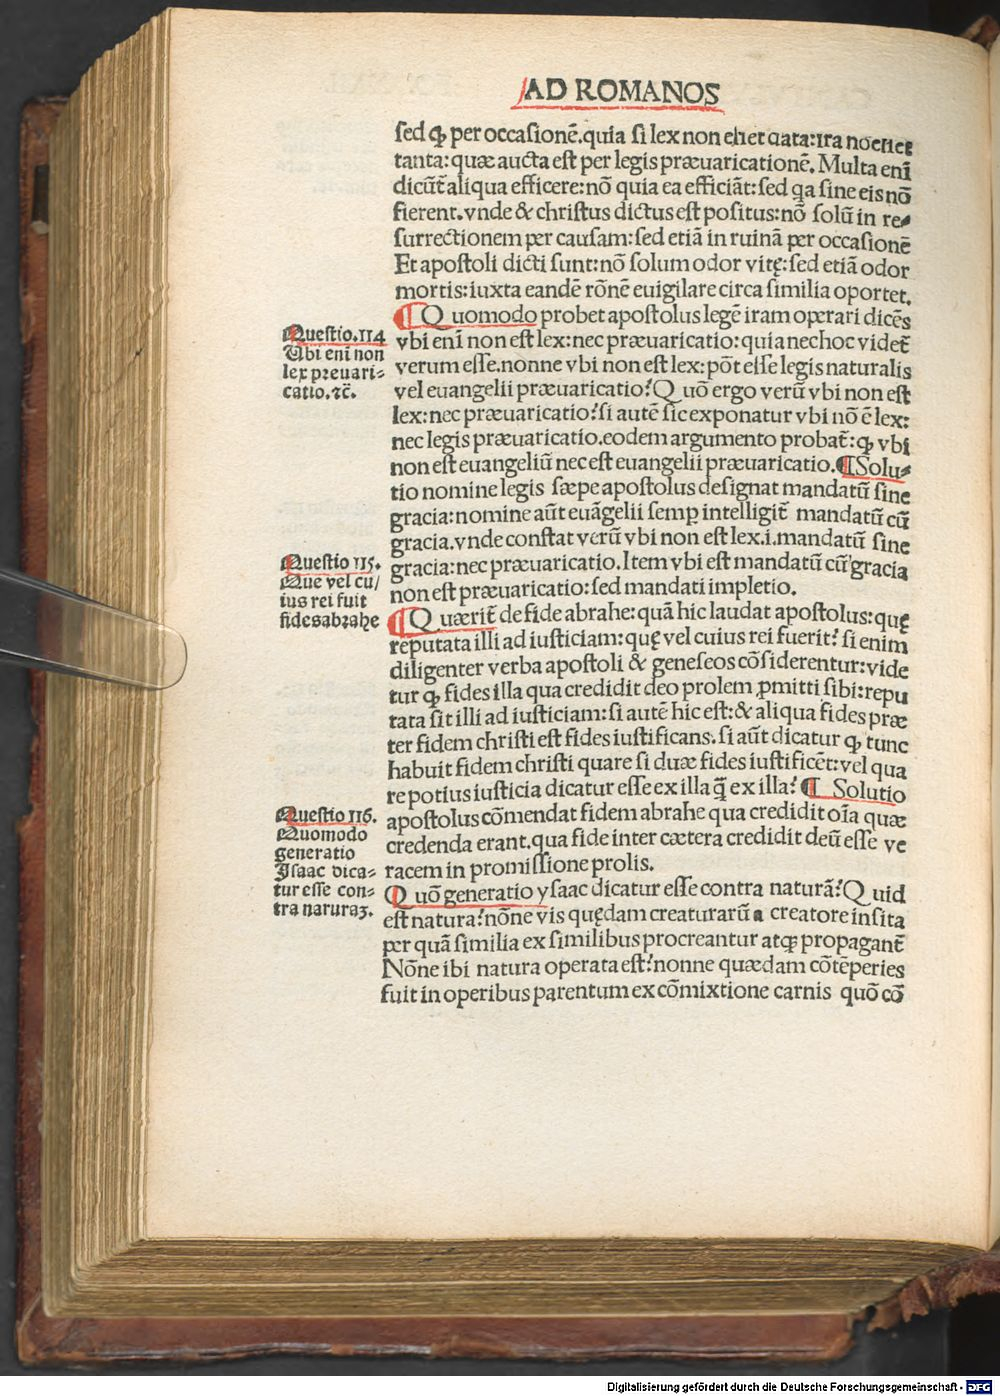 AD ROMANOS
sed ꝙ per occasionē.quia si lex non eẜet data:ira nō eẜet
tanta:quæ aucta est per legis præuaricationē. Multa enī
dicūt̄ aliqua efficere:nō quia ea efficiāt:sed qa sine eis nō
fierent.vnde & christus dictus est positus:nō solū in re⸗
surrectionem per causam:sed etiā in ruinā per occasionē
Et apostoli dicti sunt:nō solum odor vitę:sed etiā odor
mortis:iuxta eandē rōnē euigilare circa similia oportet.
¶ Quomodo probet apostolus legē iram operari dicēs
vbi enī non est lex:nec præuaricatio:quia nec hoc videt̄
verum esse.nonne vbi non est lex:pōt esse legis naturalis
vel euangelii præuaricatio? Quō ergo verū vbi non est
lex:nec præuaricatio? si autē sic exponatur vbi nō ē lex:
nec legis præuaricatio.eodem argumento probat̄:ꝙ vbi
non est euangeliū nec est euangelii præuaricatio. ¶ Solu⸗
tio nomine legis sæpe apostolus designat mandatū sine
gracia:nomine aūt euāgelii semp intelligit̄ mandatū cū
gracia.vnde constat verū vbi non est lex.i.mandatū sine
gracia:nec præuaricatio. Item vbi est mandatū cū gracia
non est præuaricatio:sed mandati impletio.
¶ Quærit̄ de fide abrahe:quā hic laudat apostolus:quę
reputata illi ad iusticiam:quę vel cuius rei fuerit? si enim
diligenter verba apostoli & geneseos cōsiderentur:vide
tur ꝙ fides illa qua credidit deo prolem ꝓmitti sibi:repu
tata sit illi ad iusticiam:si autē hic est:& aliqua fides præ
ter fidem christi est fides iustificans. si aūt dicatur ꝙ tunc
habuit fidem christi quare si duæ fides iustificēt:vel qua
re potius iusticia dicatur esse ex illa q̄ ex illa? ¶ Solutio
apostolus cōmendat fidem abrahe qua credidit oīa quæ
credenda erant.qua fide inter cætera credidit deū esse ve
racem in promissione prolis.
Quō generatio ysaac dicatur esse contra naturā? Quid
est natura? nōne vis quędam creaturarū a creatore insita
per quā similia ex similibus procreantur atqꝫ propagant̄
Nōne ibi natura operata est? nonne quædam cōtēperies
fuit in operibus parentum ex cōmixtione carnis quō cō
Questio.114
Ubi eni non
lex preuari⸗
catio.⁊c̄.
Questio 115.
Que vel cu/
ius rei fuit
fides abrahe
Questio 116.
Quomodo
generatio
Isaac dica⸗
tur esse con⸗
tra naturaꝫ.
Digitalisierung gefördert durch die Deutsche Forschungsgemeinschaft - DFG